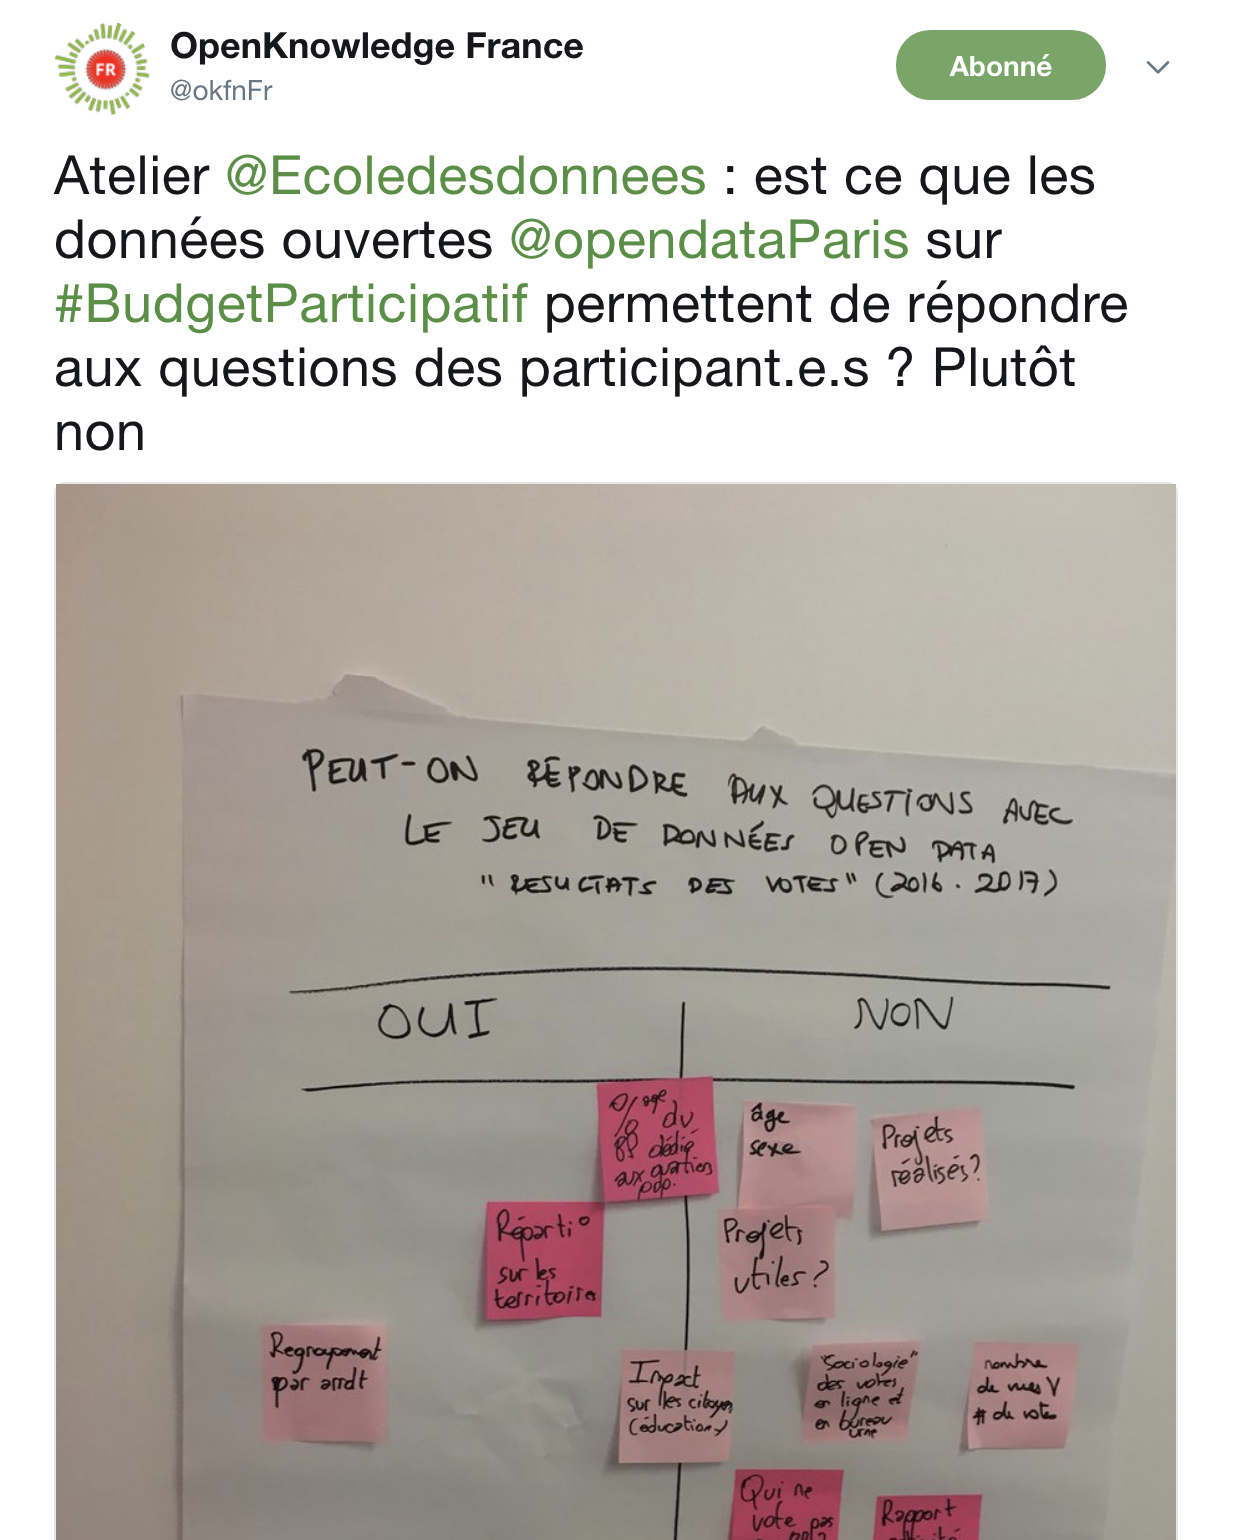 FR
OpenKnowledge France
@okfnFr
Abonné
Atelier @Ecoledesdonnees : est ce que les
données ouvertes @opendataParis sur
#BudgetParticipatif permettent de répondre
aux questions des participant.e.s ? Plutôt
non
PEUT-ON RÉPONDRE AUX QUESTIONS AVEC
LE JEU DE DONNÉES OPEN DATA
"RESULTATS DES VOTES" (2016 . 2017)
OUI
NON
%age
du
BP dédié
aux quartiers
pop.
âge
sexe
Projets
réalisés?
Réparti°
sur les
territoire
Projets
utiles?
Regroupement
par arrdt
Impact
sur les citoyen
(éducation)
"Sociologie"
des votes
en ligne et
en bureau
urne
nombre
de vues V
# de votes
Qui ne
vote pas
Rapport